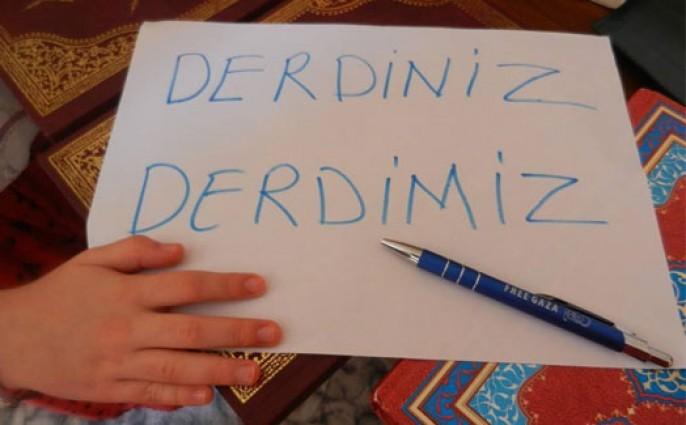 DERDİNİZ
DERDİMİZ
FREE GAZA